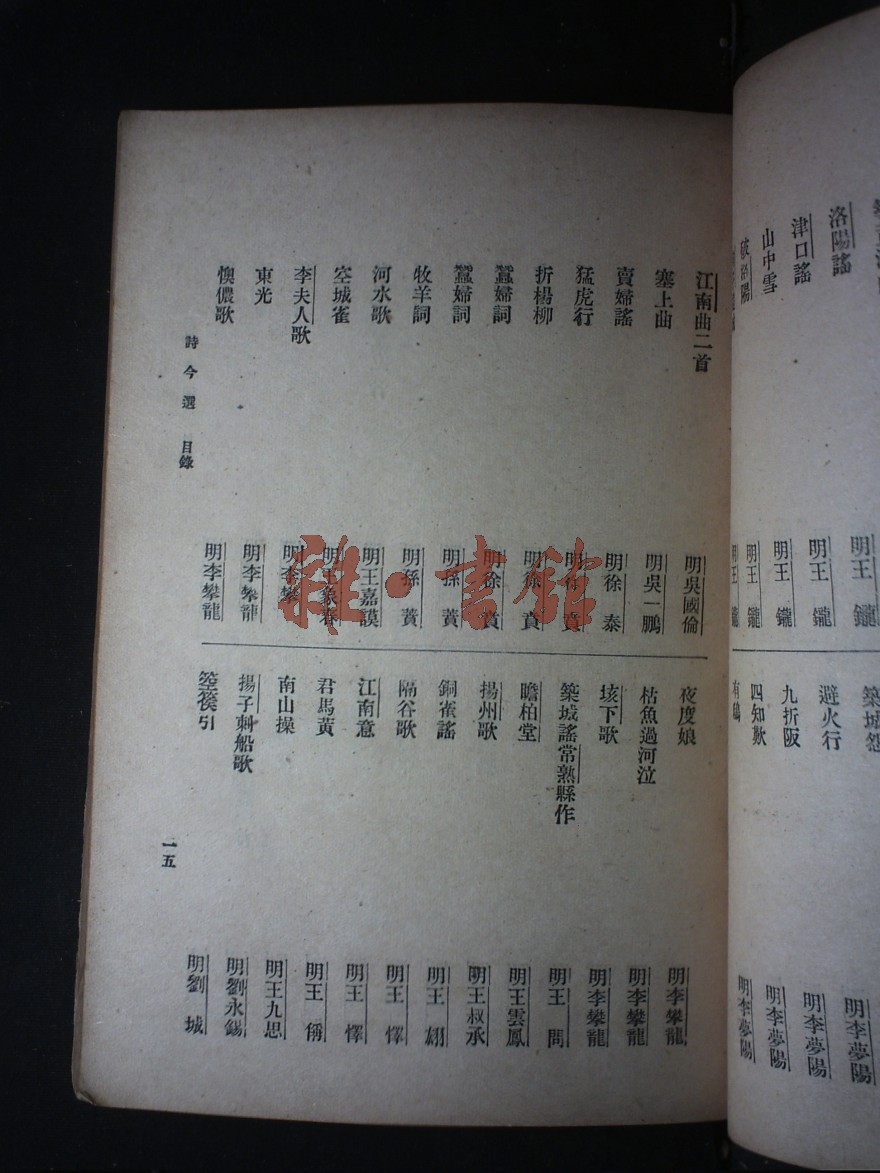 洛陽謠 明王 鑨
津口謠 明王 鑨
山中雪 明王 鑨
明王 鑨
築城怨 明李夢陽
避火行 明李夢陽
九折阪 明李夢陽
四知歎 明李夢陽
江南曲二首 明吳國倫
塞上曲 明吳一鵬
賣婦謠 明徐 泰
猛虎行 明徐 賁
折楊柳 明徐 賁
蠶婦詞 明徐 賁
蠶婦詞 明孫 蕡
牧羊詞 明孫 蕡
河水歌 明王嘉謨
空城雀 明王象春
李夫人歌 明李攀龍
東光 明李攀龍
懊儂歌 明李攀龍
夜度娘 明李攀龍
枯魚過河泣 明李攀龍
垓下歌 明李攀龍
築城謠常熟縣作 明王 問
瞻柏堂 明王雲鳳
揚州歌 明王叔承
銅雀謠 明王 翃
隔谷歌 明王 懌
江南意 明王 懌
君馬黃 明王 偁
南山操 明王九思
揚子刺船歌 明劉永錫
箜篌引 明劉 城
詩今選 目錄
一五
雜·書館